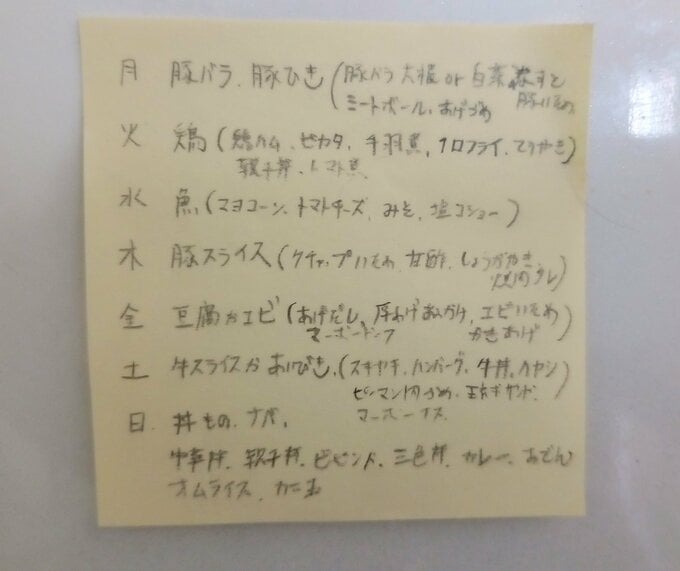 月 豚バラ、豚ひき(豚バラ大根or白菜
ミートボール、あげづめ
火 鶏(鶏ハム、ピカタ、手羽煮、1口フライ、てりやき)
親子丼、トマト煮
水 魚(マヨコーン、トマトチーズ、みそ、塩コショー)
木 豚スライス(ケチャップいため、甘酢、しょうがやき、
焼肉のタレ)
金 豆腐かエビ(あげだし、厚あげあんかけ、エビいため
マーボードーフ かきあげ)
土 牛スライスかあいびき、(スキヤキ、ハンバーグ、牛丼、ハヤシ)
ピーマン肉づめ、
マーボーナス
日 丼もの、ナベ、
中華丼、親子丼、ビビンバ、三色丼、カレー、おでん
オムライス、カニ玉